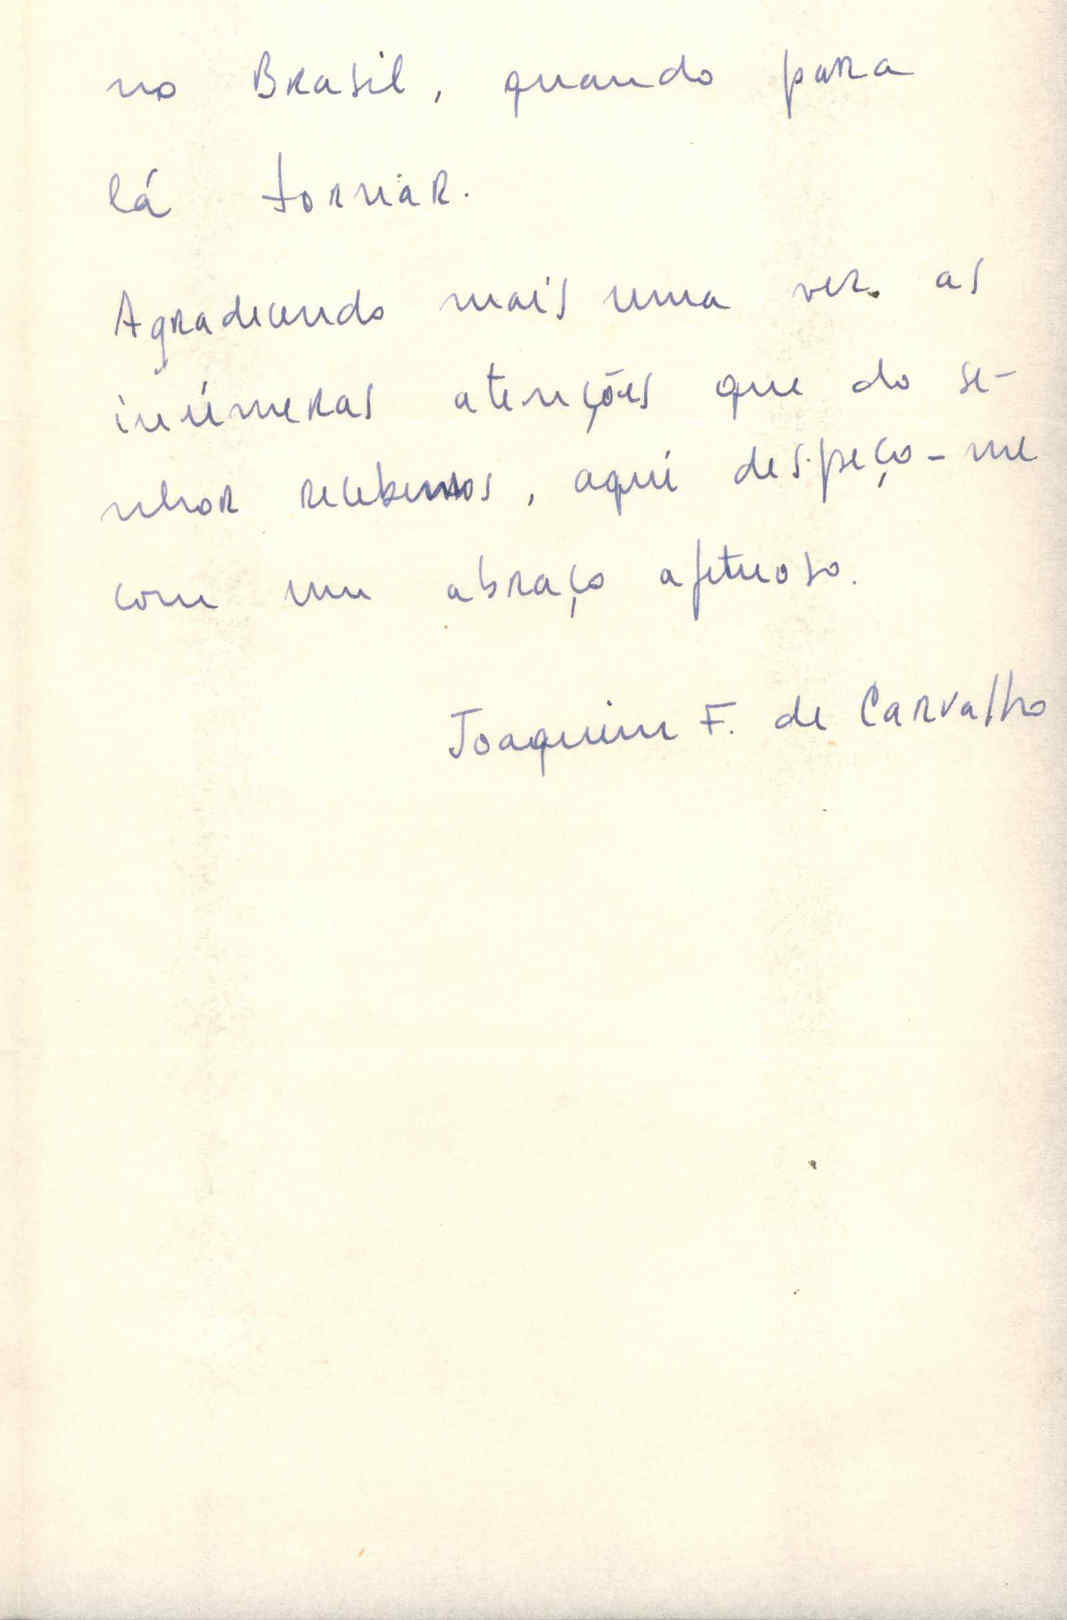 no Brasil, quando para
lá tornar.
Agradecendo mais uma vez as
inúmeras atenções que do se-
nhor recebemos, aqui despeço-me
com um abraço afetuoso.
Joaquim F. de Carvalho